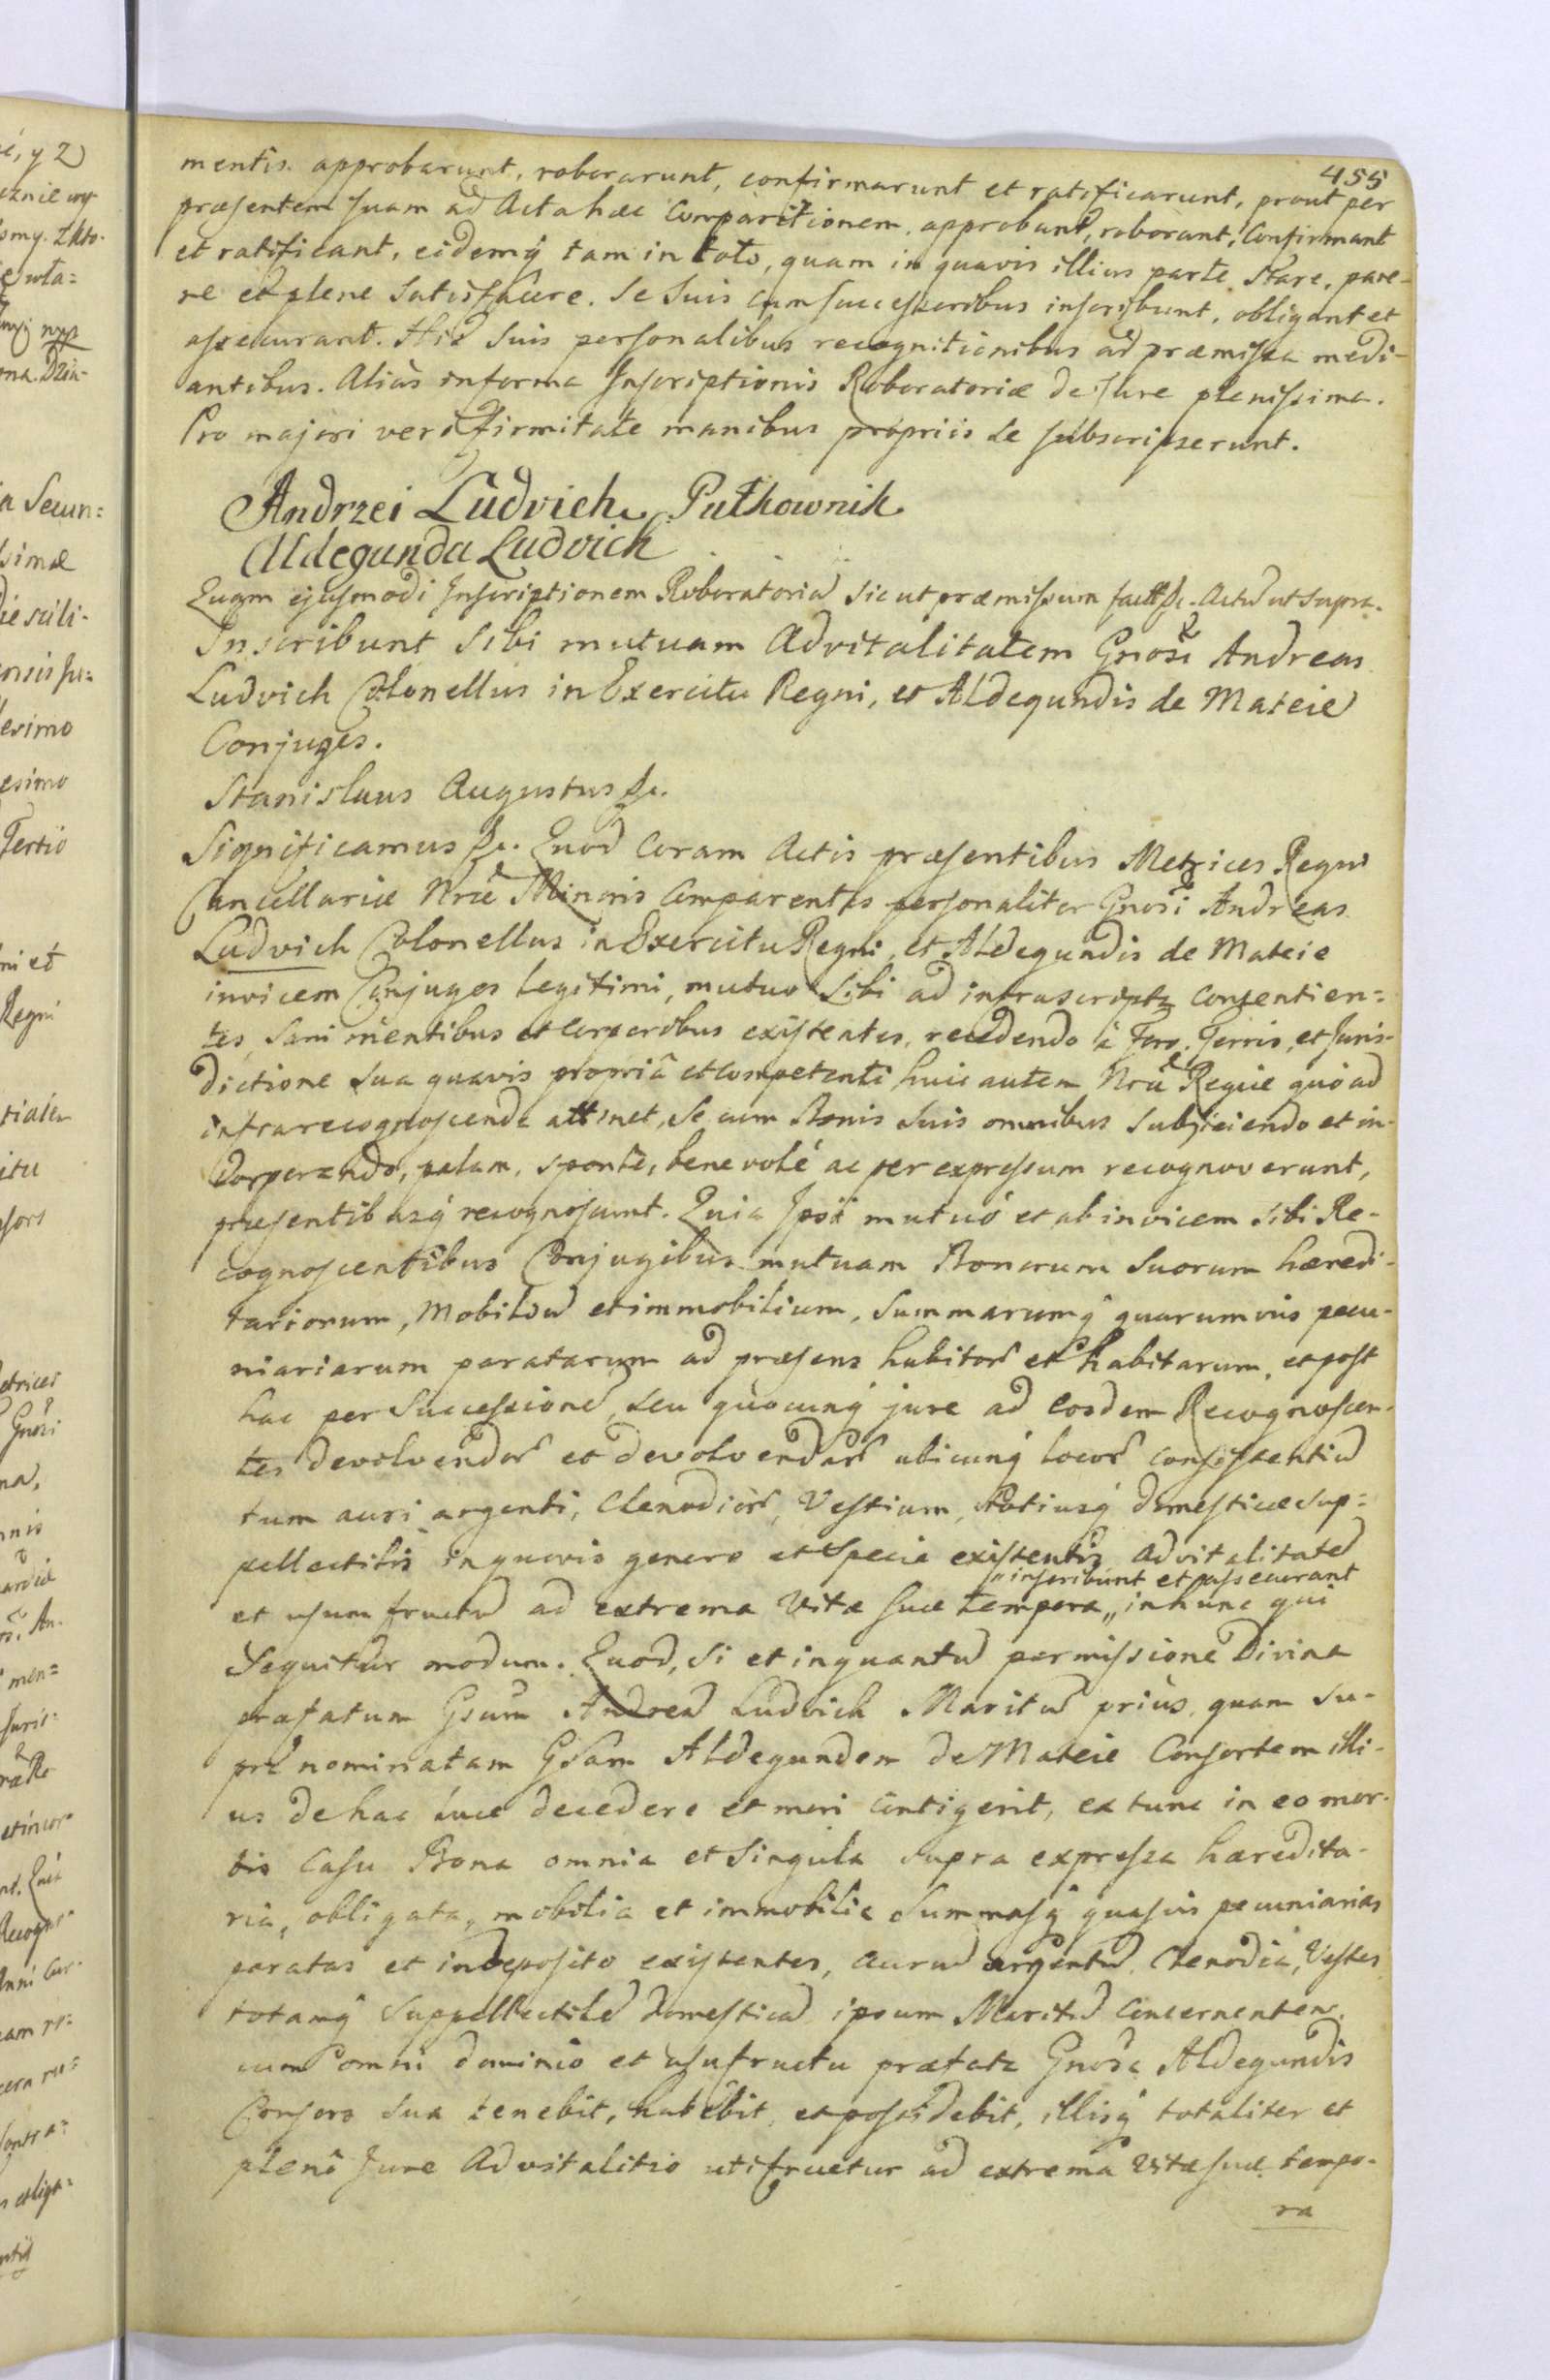 455
mentis. approbarunt, roborarunt, confirmarunt et ratificarunt, prout per
præsentem suam ad Acta hæc Comparitionem, approbant, roborant, Confirmant
et ratificant, eidemq́ tam in toto, quam in quavis illius parte stare, pare-
re et plene satisfacere. Se Suis cum successoribus inscribunt, obligant et
assecurant. His suis personalibus recognitionibus ad præmissa medi-
antibus. Aliàs in forma Inscriptionis Roboratoriæ de Jure plenissima.
Pro majori vero firmitate manibus propriis se subscripserunt.
Andrzei Ludvich Pułkownik
Aldegunda Ludvich
Quam ejusmodi Inscriptionem Roboratoriã sicut præmissum factt &c. Actũ ut supra.
Inscribunt sibi mutuam Advitalitatem Gnosi Andreas
Ludvich Colonellus in Exercitu Regni, et Aldegundis de Mateie
Conjuges.
Stanislaus Augustus &c.
Significamus &c. Quod Coram Actis præsentibus Metrices Regni
Cancellariæ Nræ Minoris Comparentes personaliter Gnosi Andreas
Ludvich Colonellus in Exercitu Regni, et Aldegundis de Mateie
invicem Conjuges legitimi, mutuo sibi ad infrascripta consentien=
tes, sani mentibus et corporibus existentes, recedendo à Foro, Terris, et Juris-
dictione sua quavis propriâ et competenti huic autem Nræ Regiæ quò ad
infrarecognoscenda attinet, se cum Bonis suis omnibus subjiciendo et in-
corporando, palam, sponte, benevolé ac per expressum recognoverunt,
præsentibusq́ recognoscunt. Quia Ipsi mutuó et ab invicem sibi Re-
cognoscentibus Conjugibus mutuam Bonorum suorum hæredi-
tariorum, Mobiliũ et immobilium, Summarumq́ quarumvis pecu-
niariarum paratarum ad præsens habitor̃ et habitarum, et post
hac per Successionẽ, seu quocunq́ jure ad eosdem Recognoscen-
tes devolvendor̃ et devolvendar̃ ubicunq́ locor̃ consistentiũ
tum auri argenti, Clenodiòr̃, Vestium, totiusq́ domesticæ sup=
pellectilis in quovis genere et specie existentis Advitalitatẽ
et usumfructũ ad extrema Vitæ suæ tempora „inscribunt et assecurant in hunc qui
sequitur modum. Quod, si et inquantũ permissione Divina
præfatum Gsum Andreã Ludvich Maritũ priùs, quam su-
pra nominatam Gsam Aldegundem de Mateie Consortem illi-
us de hac luce decedere et mori contigerit, ex tunc in eo mor-
tis casu Bona omnia et singula supra expressa hæredita-
ria, obligata, mobilia et immobilia summasq́ quasvis pecuniarias
paratas et in deposito existentes, aurũ argentũ, Clenodia, Vestes
totamq́ suppellectilẽ domesticã ipsum Maritũ concernentem
cum omni dominio et usufructu præfata Gnosa Aldegundis
Consors sua tenebit, habebit, et possidebit, illisq́ totaliter et
plenô Jure Advitalitio utifruetur ad extrema Vitæ suæ tempo-
ra